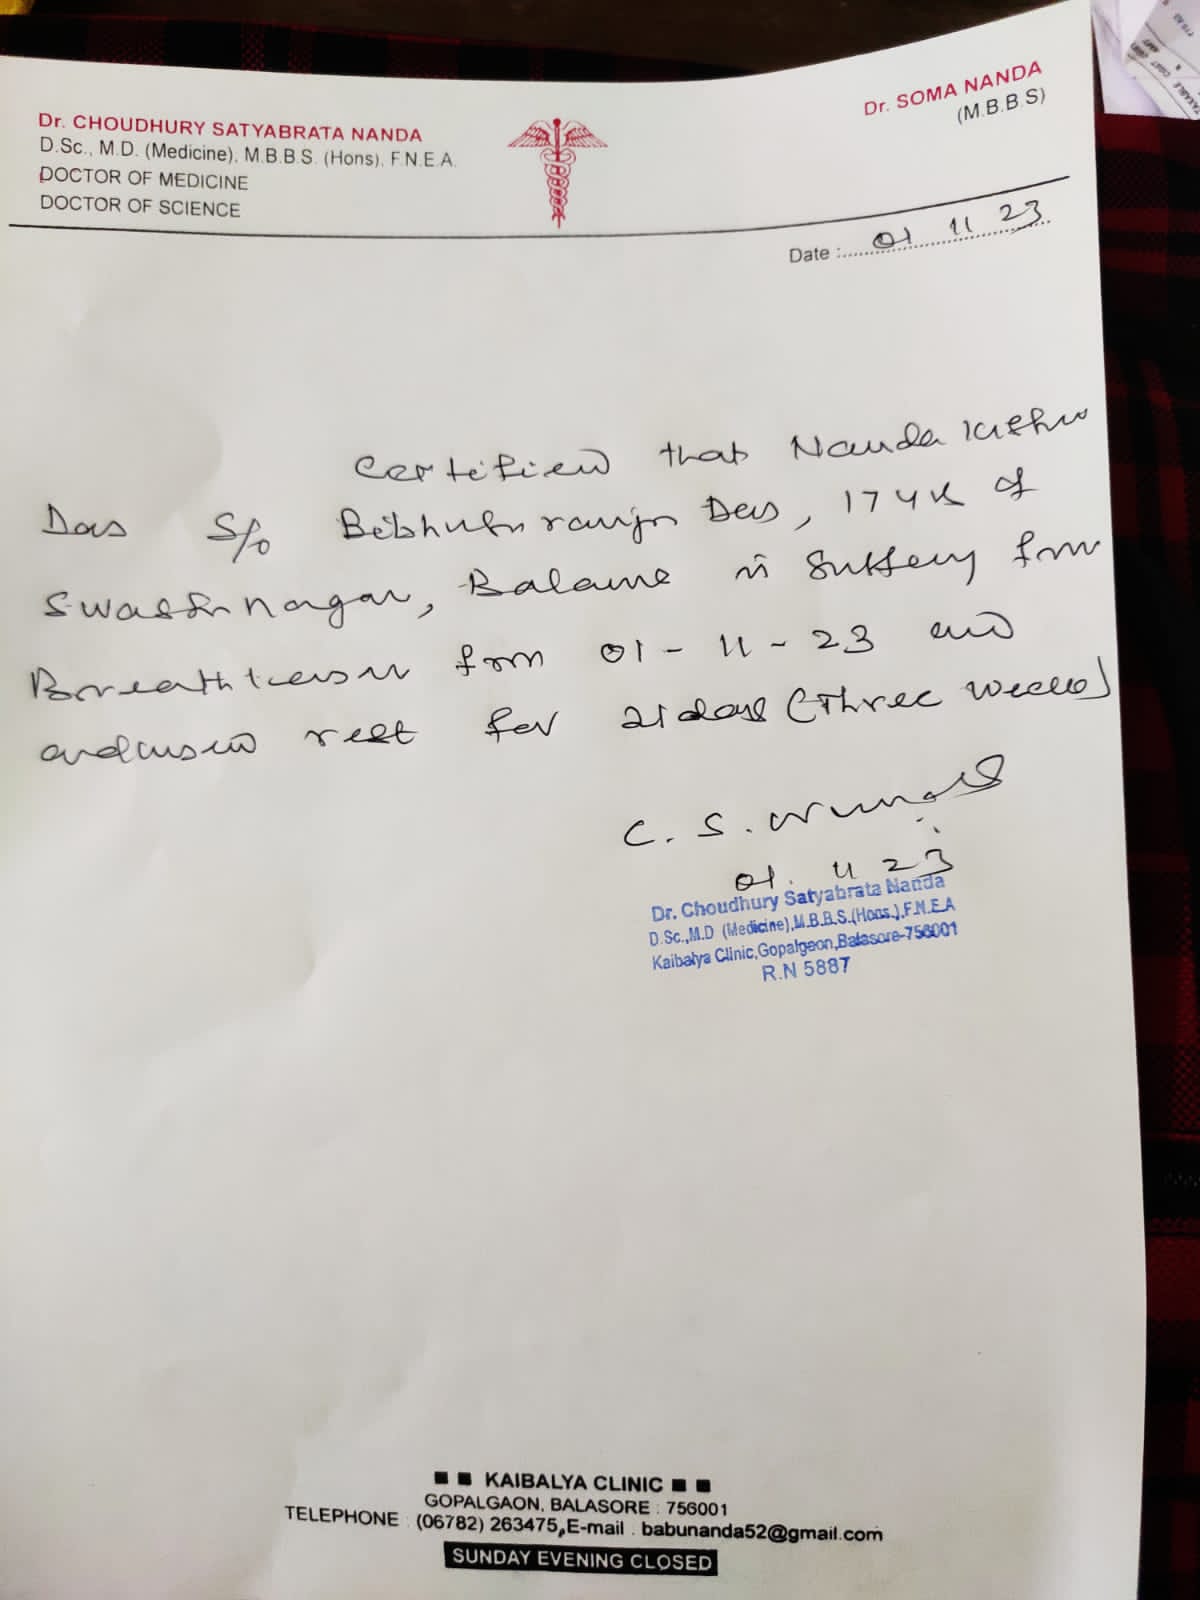 Dr. CHOUDHURY SATYABRATA NANDA
D.Sc., M.D. (Medicine), M.B.B.S. (Hons), F.N.E.A.
DOCTOR OF MEDICINE
DOCTOR OF SCIENCE
Dr. SOMA NANDA
(M.B.B.S)
Date : 01 11 23
Certified that Nanda
Das S/o Das, 17 of
from
from 01-11-23 and
rest for 21 days (Three weeks)
C. S.
01. 11 23
Dr. Choudhury Satyabrata Nanda
D.Sc.,M.D (Medicine),M.B.B.S.(Hons.),F.N.E.A
Kaibalya Clinic,Gopalgeon,Balasore-756001
R.N 5887
KAIBALYA CLINIC
GOPALGAON, BALASORE : 756001
TELEPHONE : (06782) 263475, E-mail : babunanda52@gmail.com
SUNDAY EVENING CLOSED